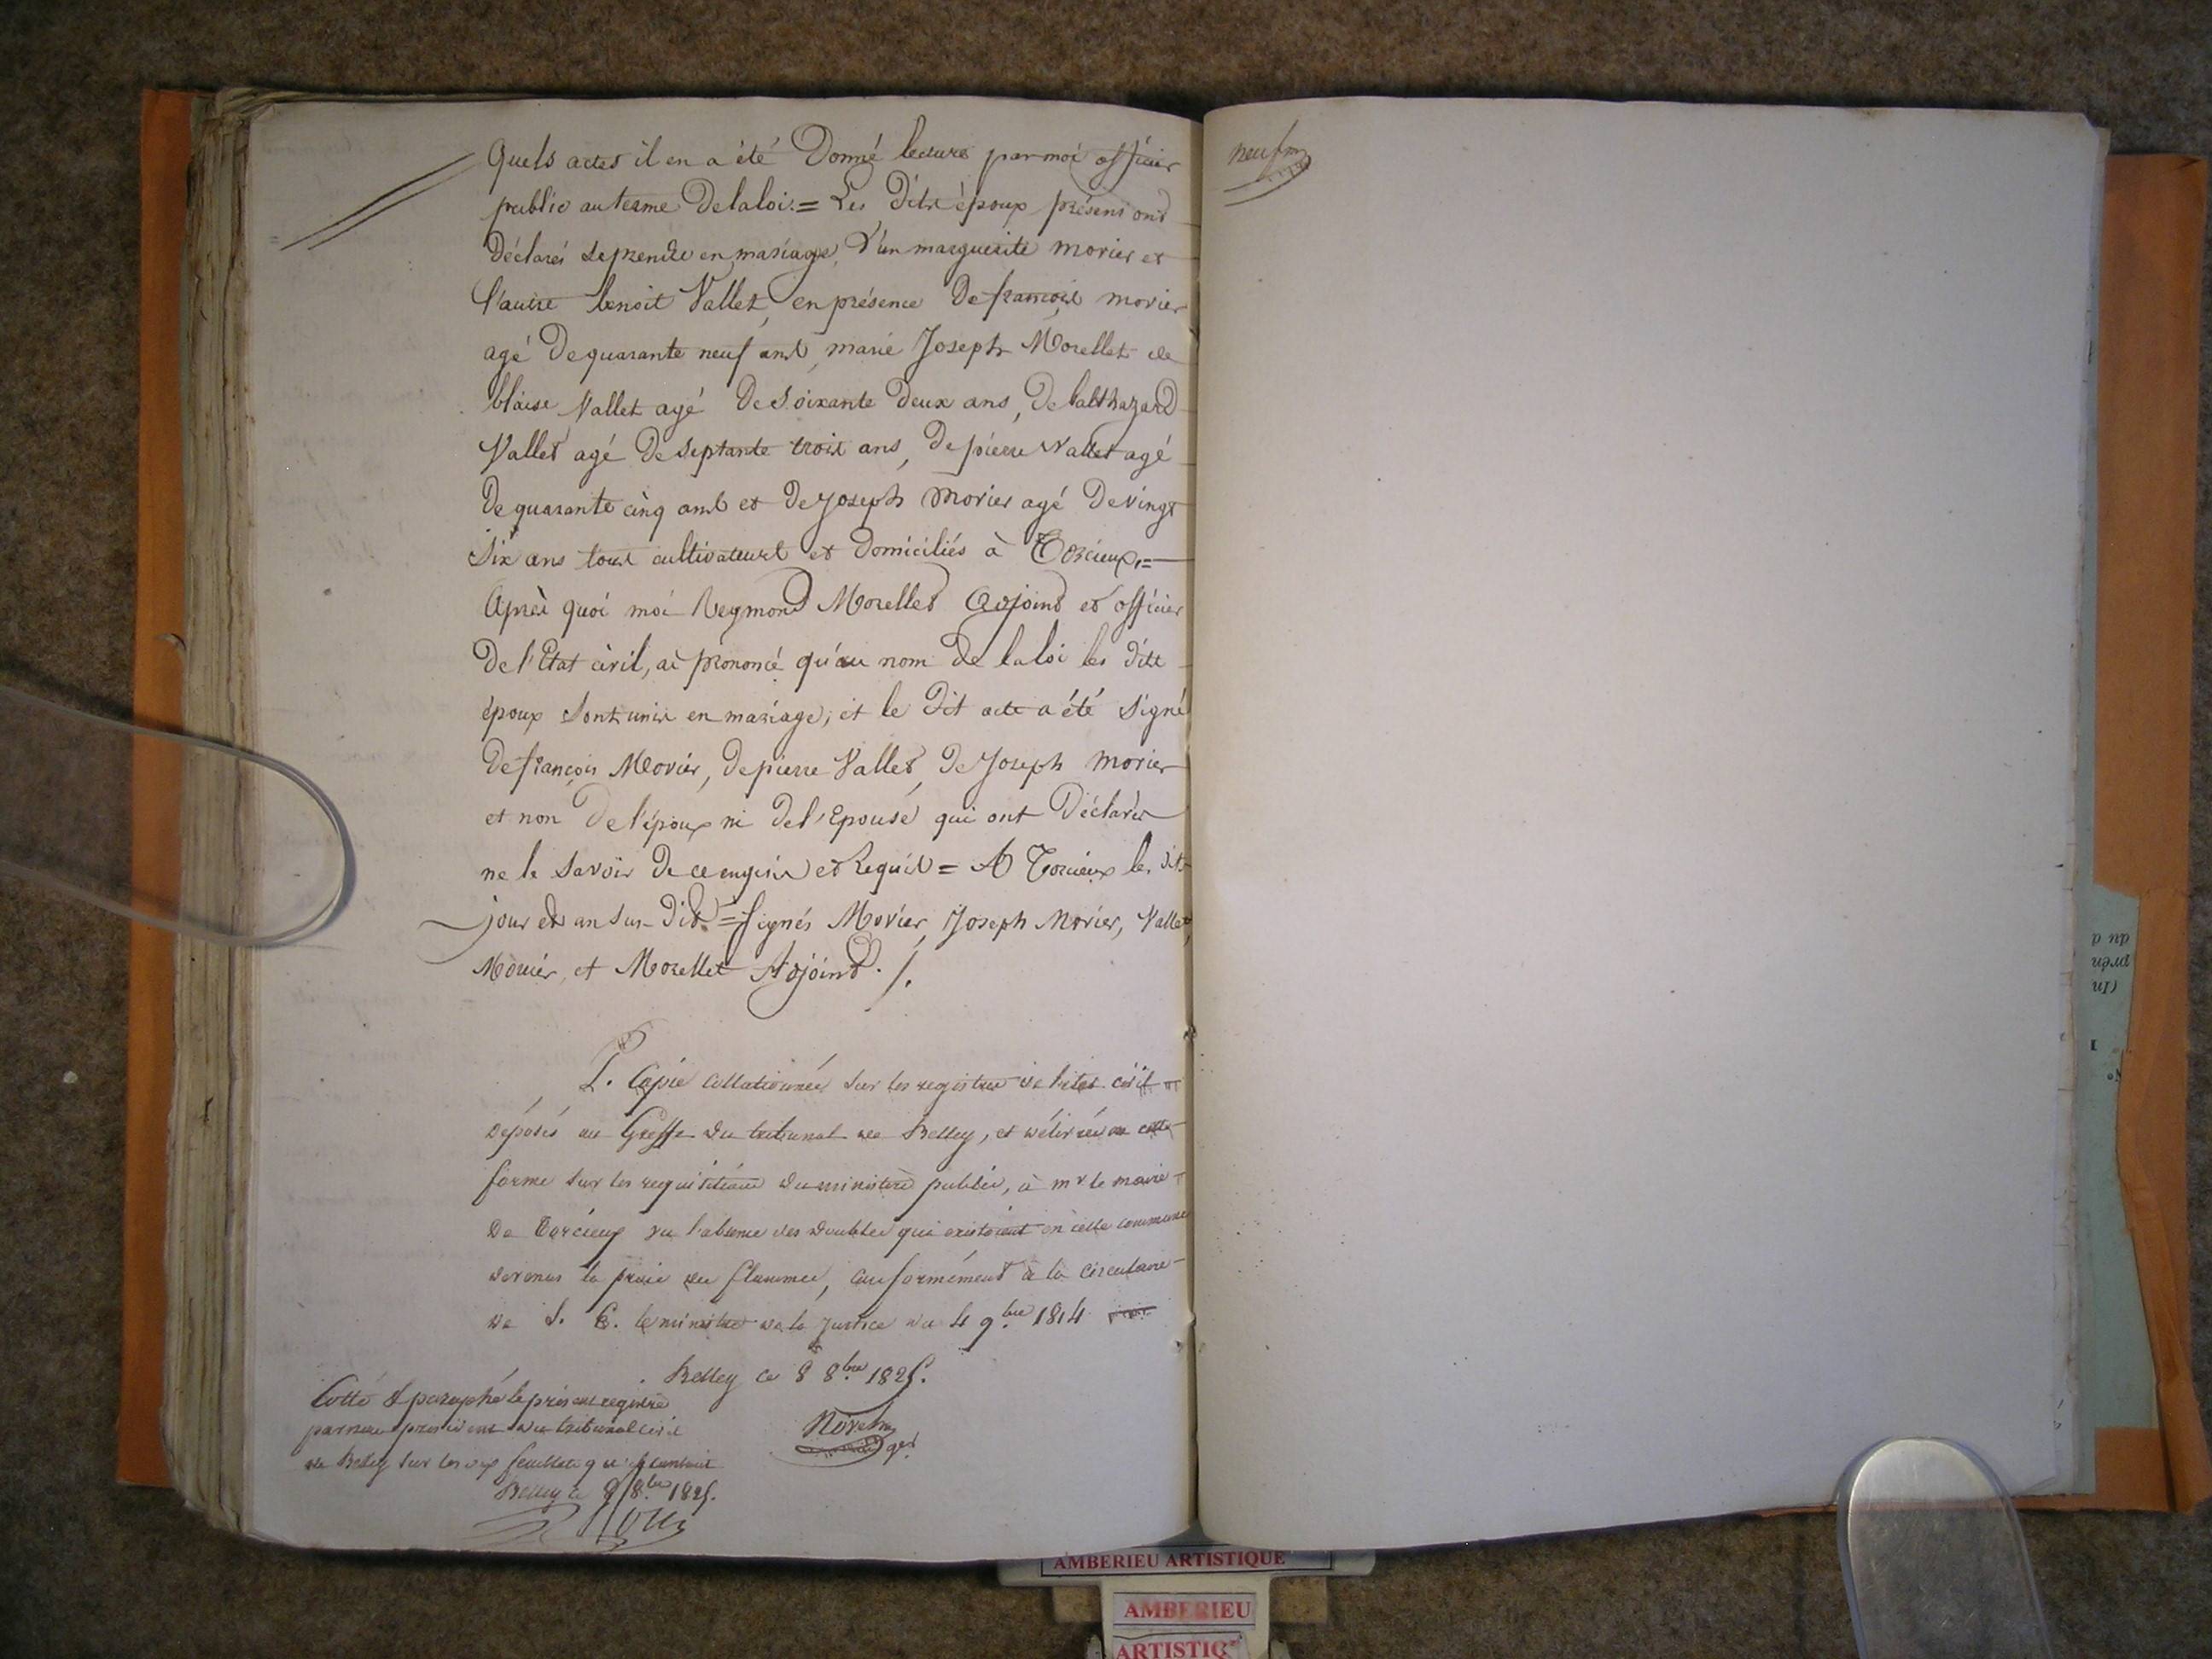 Quels actes il en a été Donné lecture par moi officier
public au terme De la loi. = Les Dits époux présens ont
Déclarés se prendre en mariage, l'un marguerite morier et
l'autre benoit Vallet, en présence De françois morier
agé De quarante neuf ans, marie Joseph Morellet de
blaise Vallet agé De Soixante Deux ans, De balthazard
Vallet agé De Septante trois ans, De pierre Vallet agé
De quarante cinq ans et De Joseph Morier agé De vingt
Six ans tous cultivateurs et Domiciliés à Torcieux. =
Après quoi moi Reymond Morellet Adjoint et officier
De l'Etat civil, ai prononcé qu'au nom De la loi les dits
époux Sont unis en mariage; et le Dit acte a été Signé
De françois Morier, De pierre Vallet, De Joseph Morier
et non De l'époux ni De l'Epouse qui ont Déclarés
ne le Savoir De ce enquis et Requis = A Torcieux les dits
jour et an Sus-Dit = Signés Morier, Joseph Morier, Vallet,
Morier, et Morellet Adjoint ./.
P. Copie Collationnée Sur les registres de l'état civil
Déposés au Greffe du tribunal de Belley, et délivrée en cette
forme Sur les requisitions du ministère public, à mr le maire
De Torcieux vu l'absence des doubles qui existoient en cette commune
devenus la proie des flammes, Conformément à la Circulaire
de S. E. le ministre de la Justice du 4 9.bre 1814
Belley ce 8 8.bre 1825.
Cotté & paraphé le présent registre
par nous président du tribunal civil
de Belley Sur les dix feuillets qu'il contient
Belley ce 8 8.bre 1825.
neuf
AMBERIEU ARTISTIQUE
AMBERIEU
ARTISTIQ
du d
prén
(In
I
N°